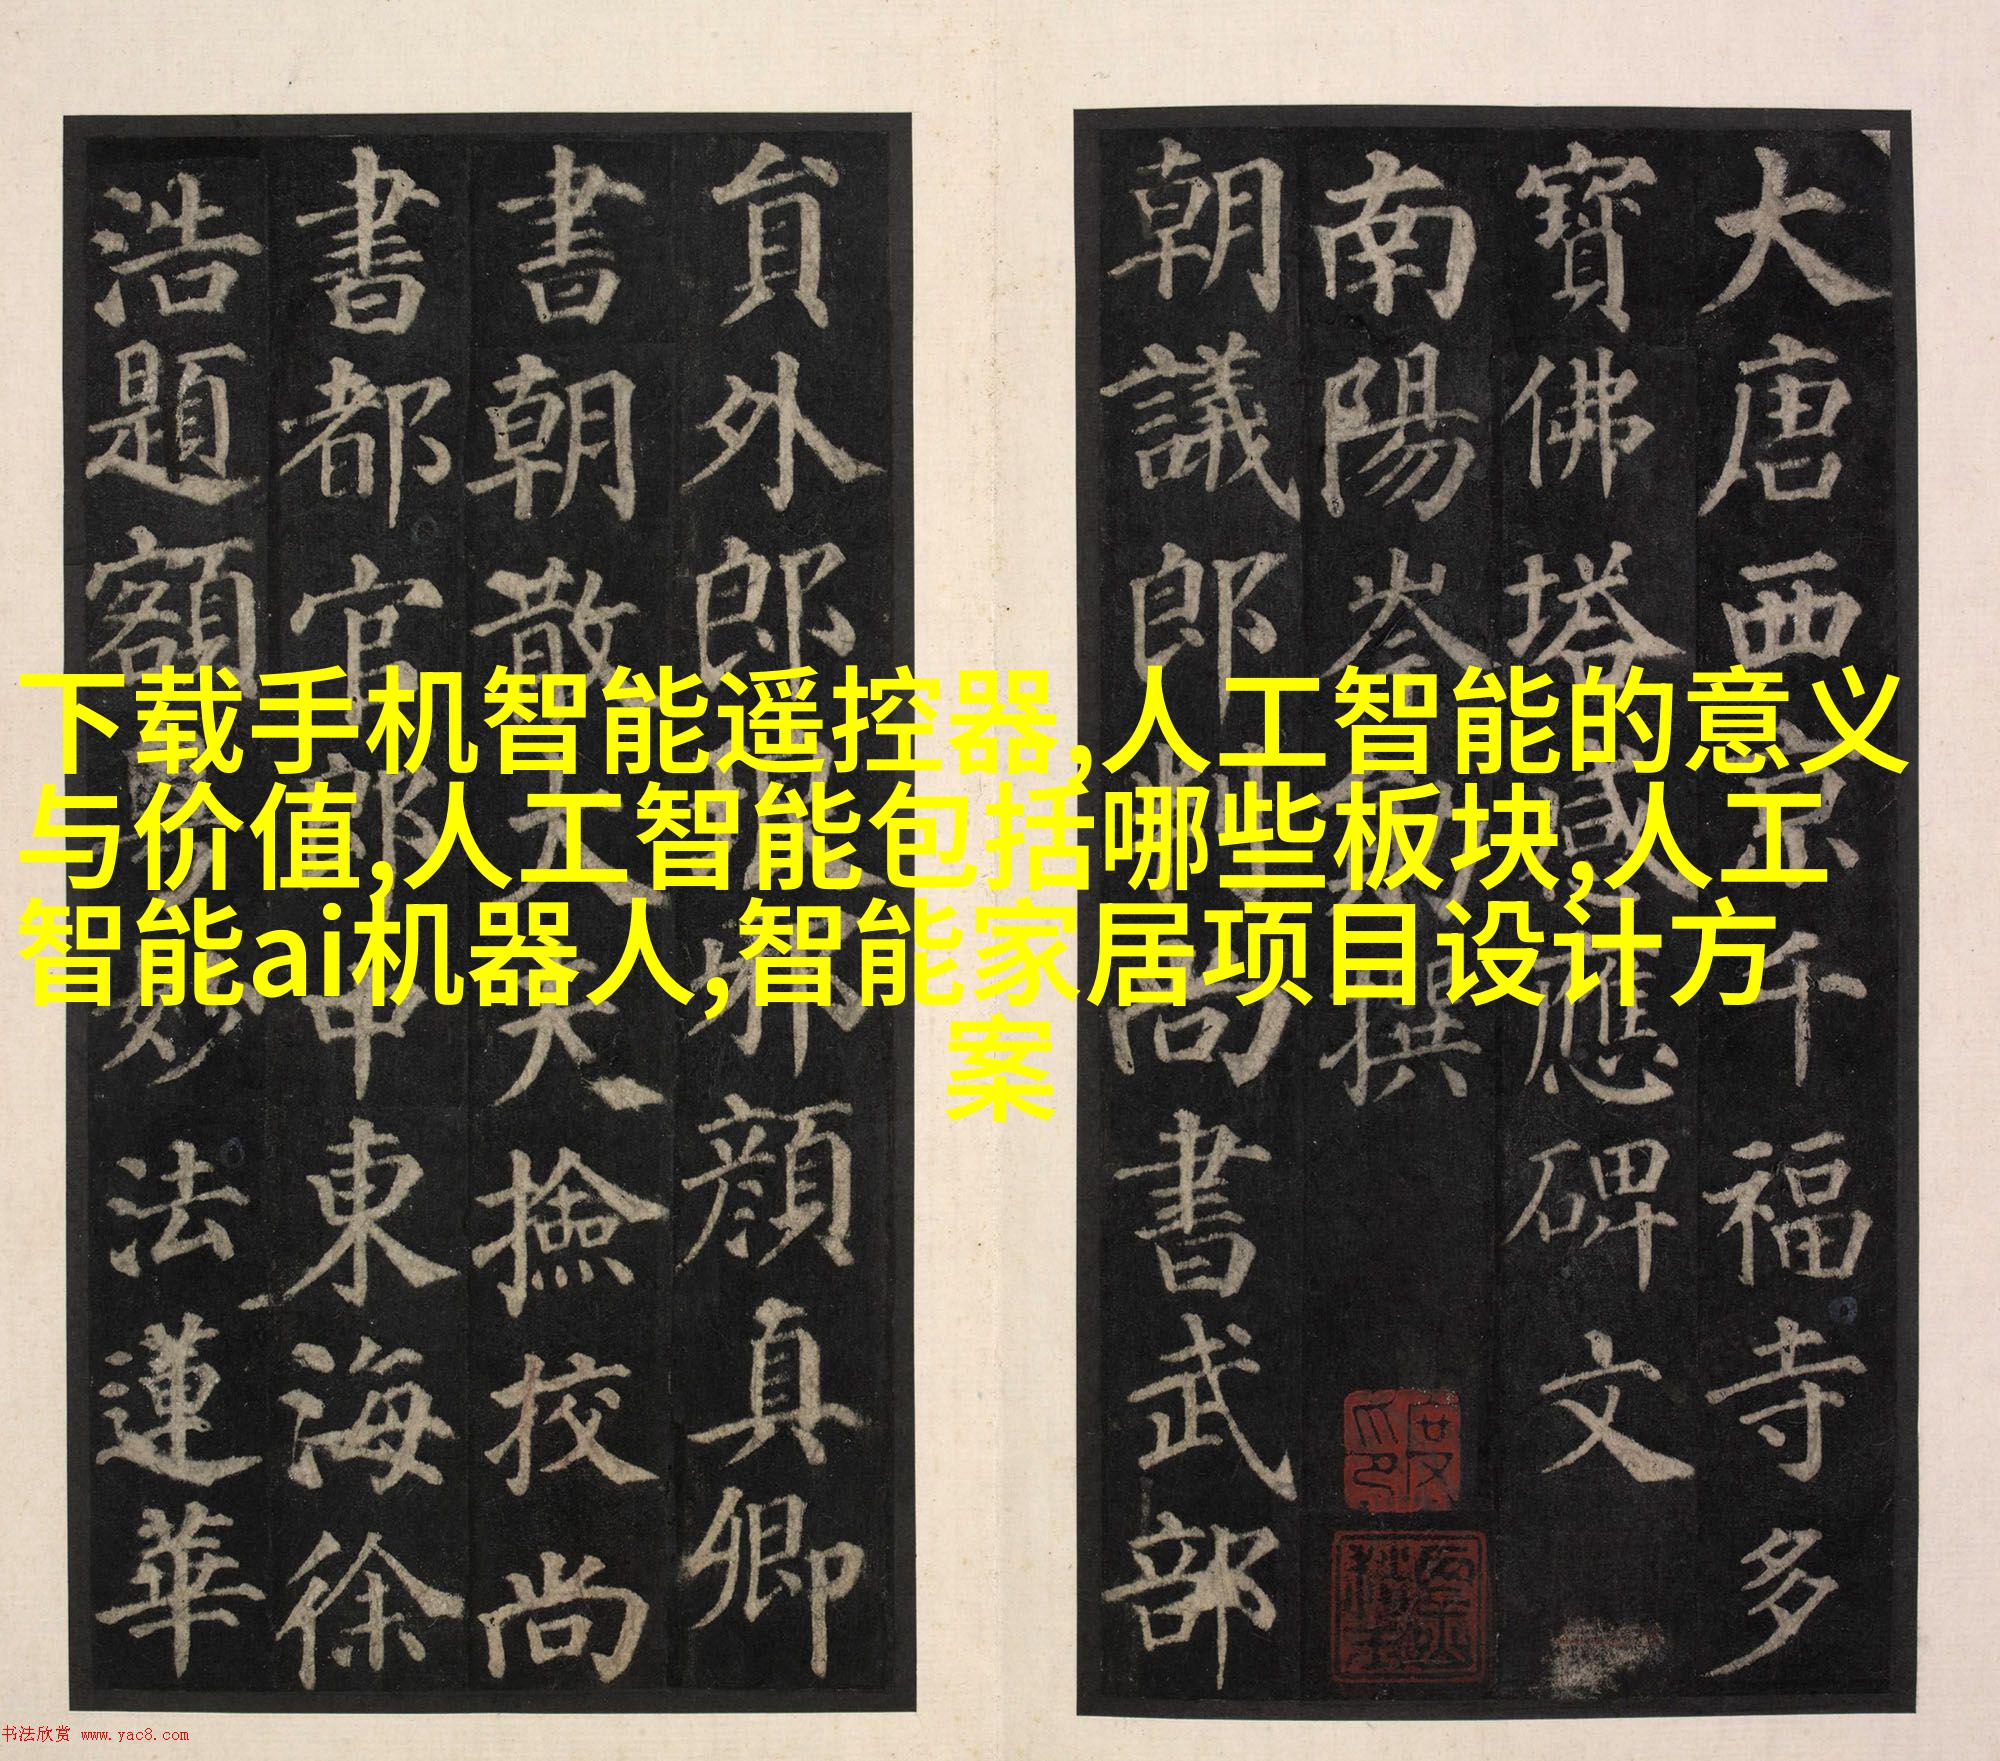 大唐西京千福寺多
寶佛塔感應碑文
南陽岑勛撰
朝議郎判尚書武部
貟外郎琅邪顏真卿
書朝散大夫撿校尚
書都官郎中東海徐
浩題額粤妙法蓮華
下载手机智能遥控器,人工智能的意义
与价值,人工智能包括哪些板块,人工
智能ai机器人,智能家居项目设计方
案
书法欣赏 www.yac8.com